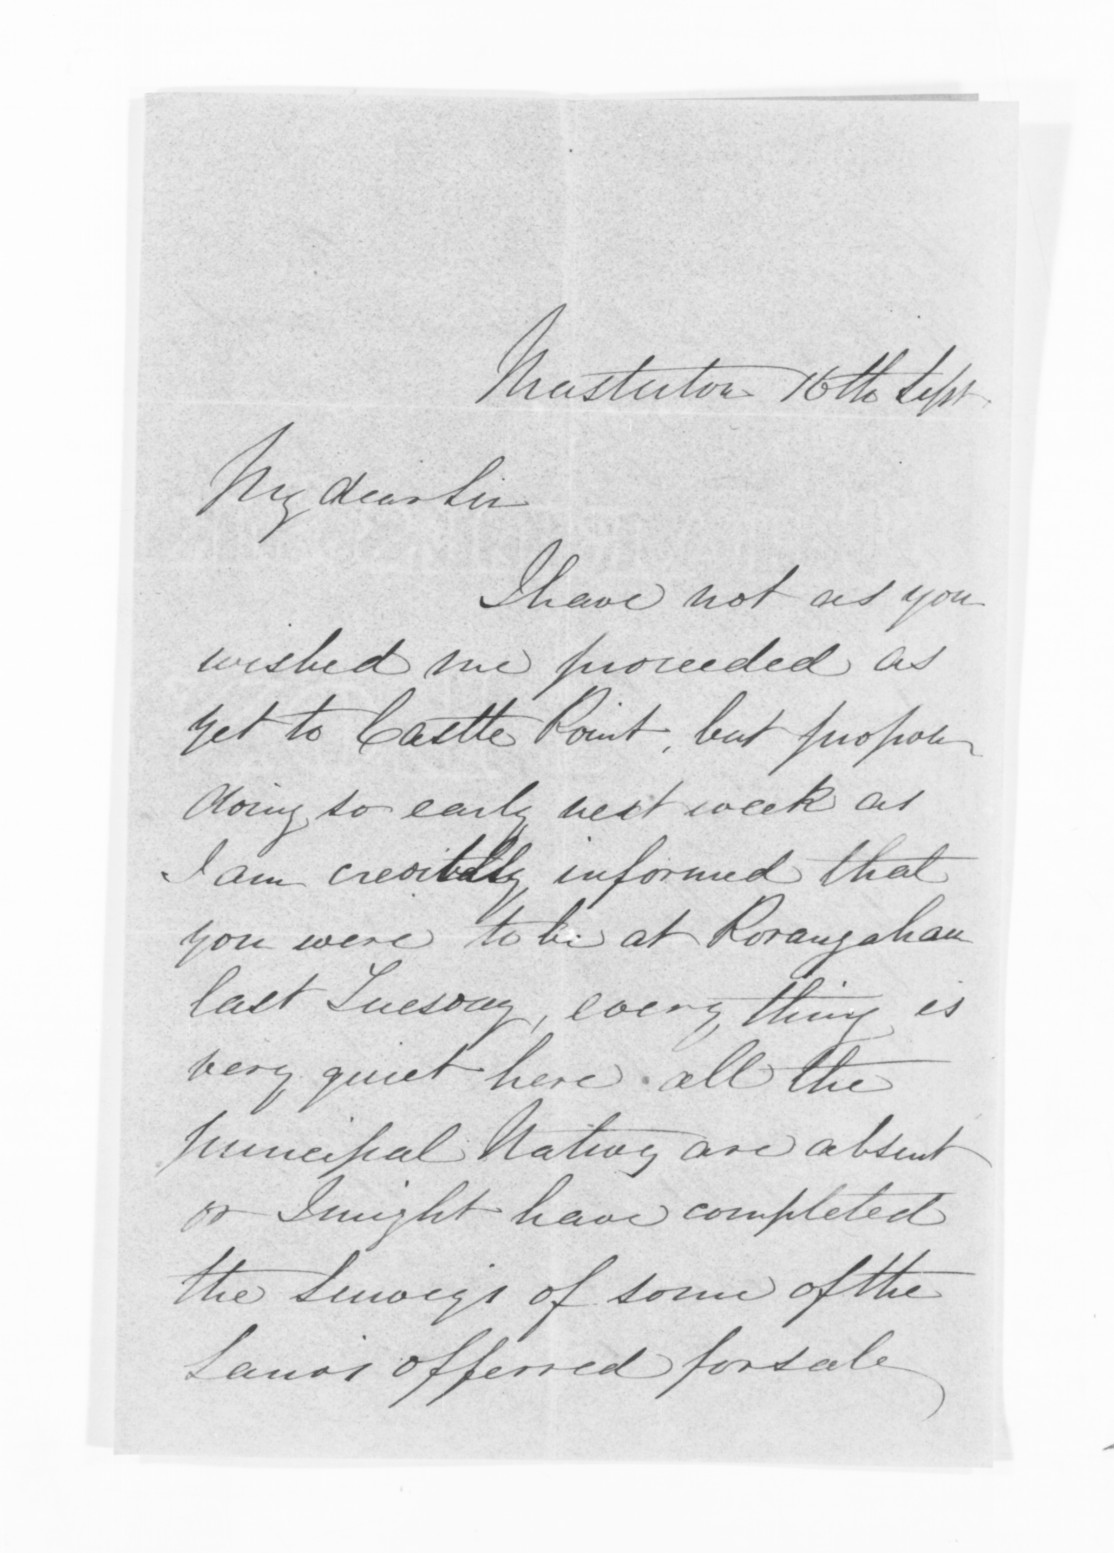 Masterton 16th Sept.
My dear Sir
I have not as you
wished me proceeded as
yet to Castle Point, but propose
doing so early next week as
I am credibly informed that
you were to be at Rorangahau
last Tuesday, every thing is
very quiet here all the
principal Natives are absent
or I might have completed
the Surveys of some of the
Lands offerred for sale